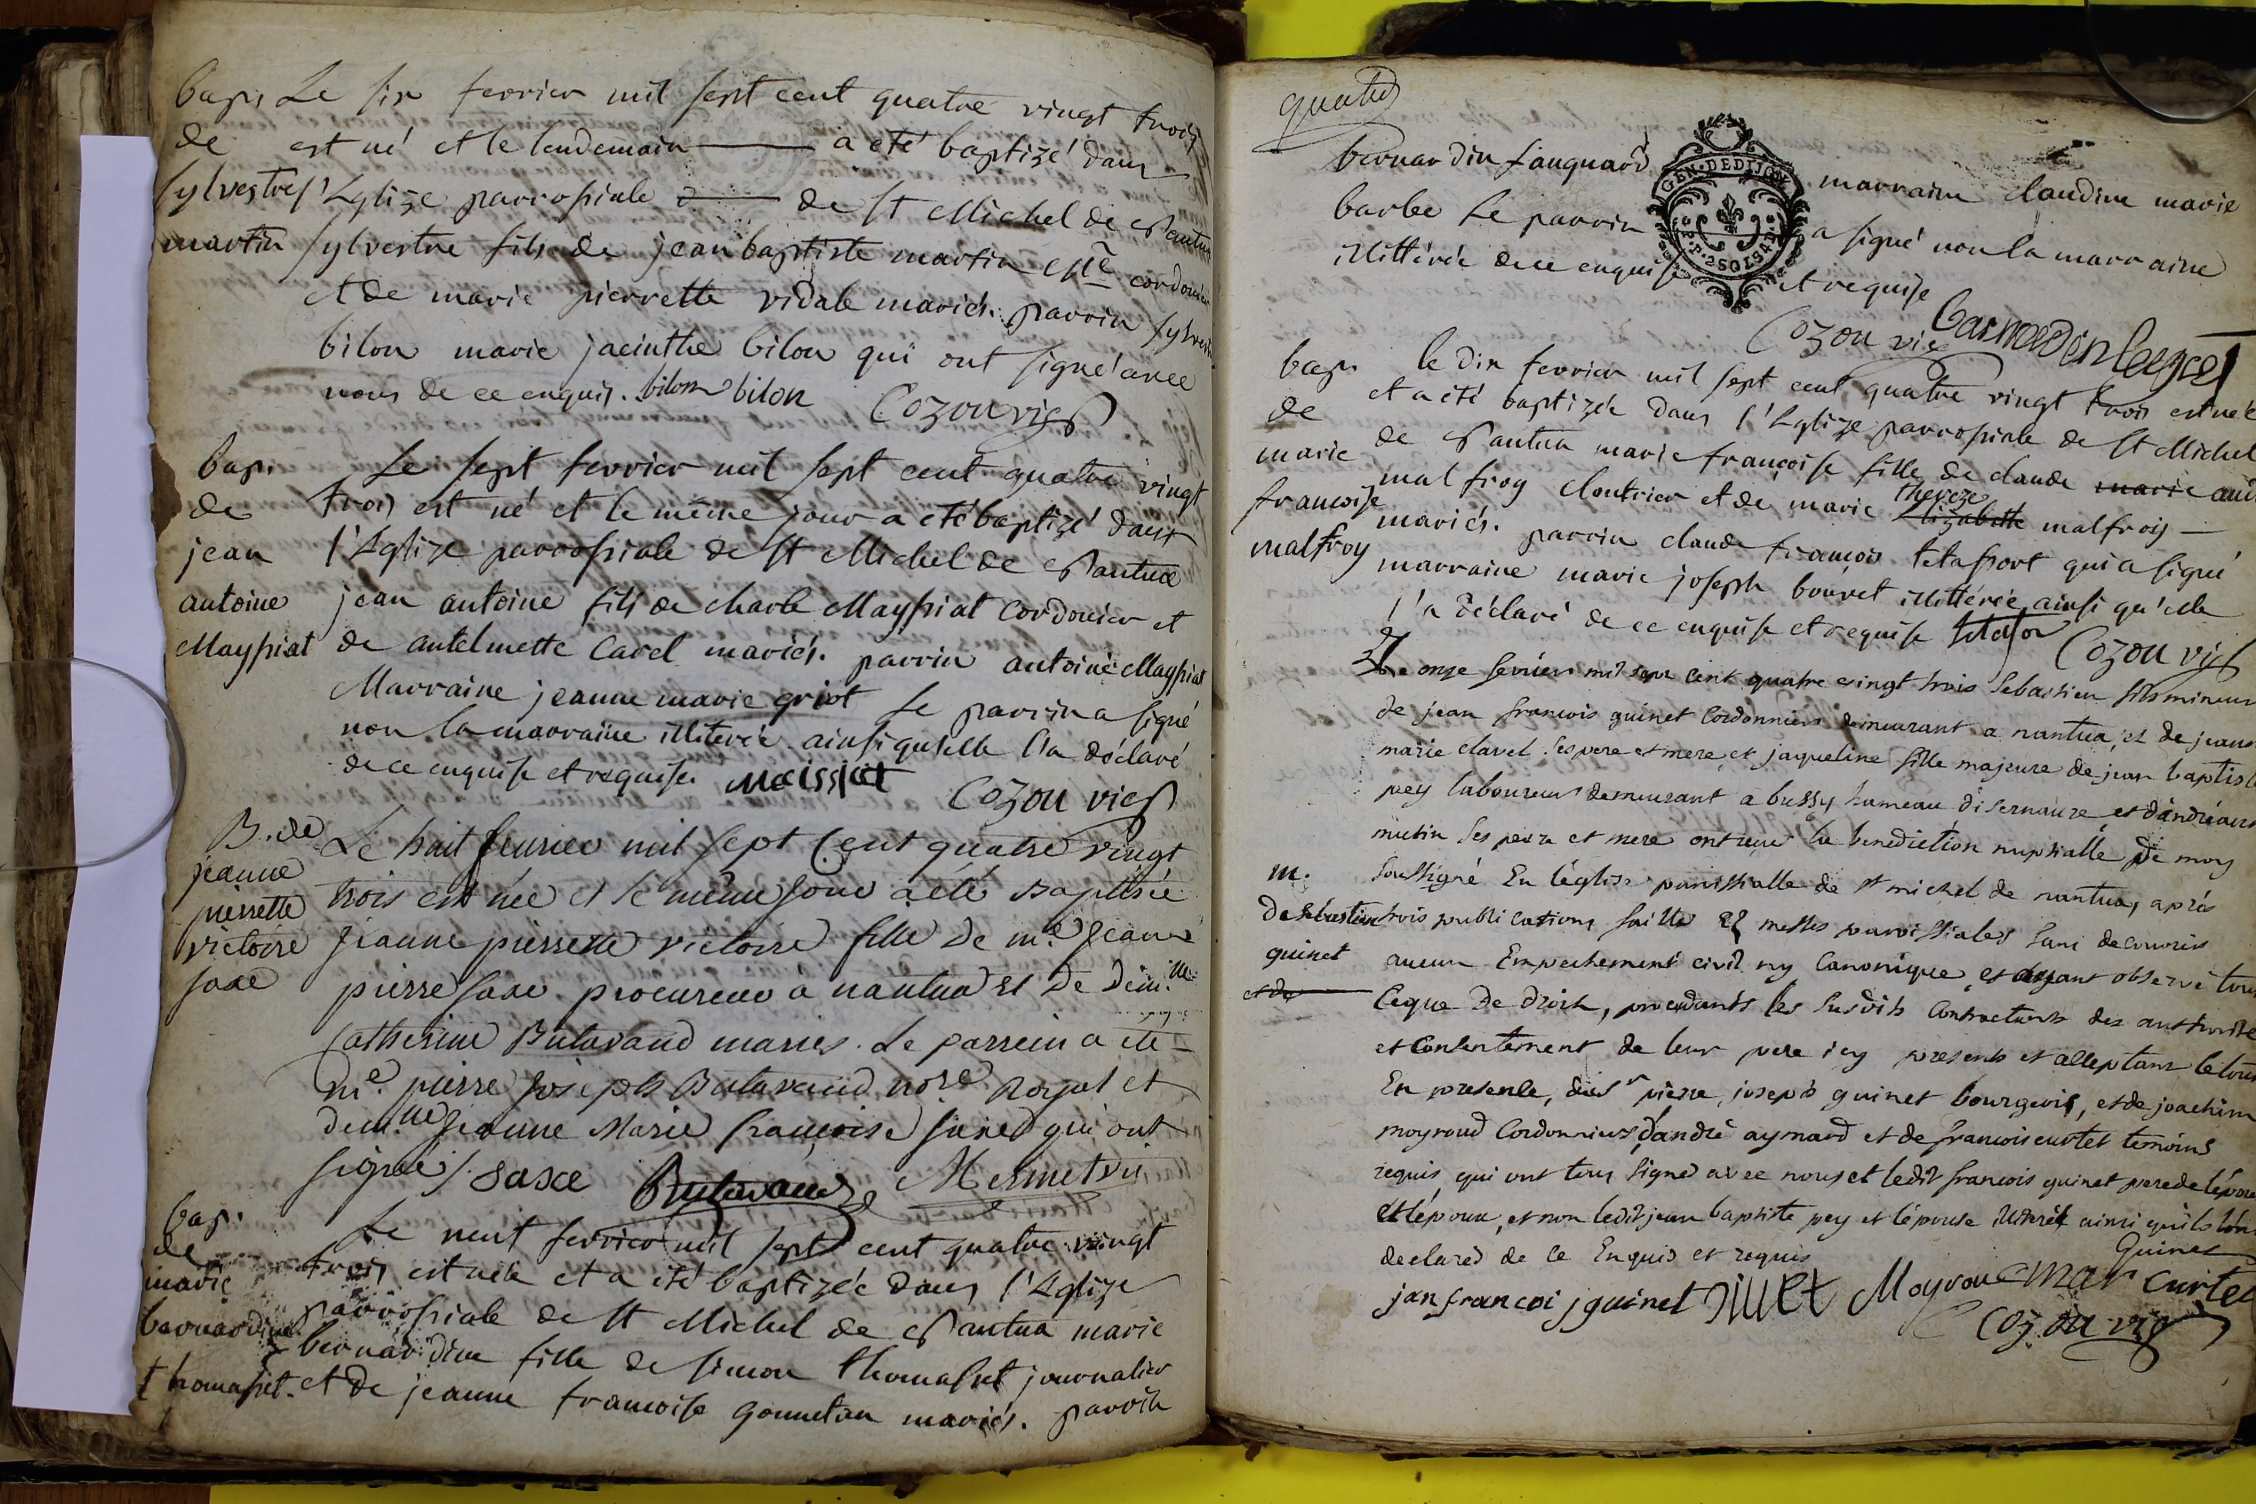 bap. Le six fevrier mil sept cent quatre vingt trois
de est né et le lendemain a eté baptizé dans
sylvestre l'Eglize parrossiale de St Michel de Nantua
martin sylvestre fils de jean baptiste martin me cordonier
et de marie pierrette vidale mariés. parrin sylvestre
bilon marie jacinthe bilon qui ont signé avec
nous de ce enquis. bilon bilon Cozon vic
bap. Le sept fevrier mil sept cent quatre vingt
de trois est né et le même jour a eté baptizé dans
jean l'Eglize parrossiale de St Michel de Nantua
antoine jean antoine fils de charle Mayssiat cordonier et
Mayssiat de antelmette Carel mariés. parrin antoine Mayssiat
Marraine jeanne marie griot Le parrin a signé
non la marraine illiterée ainsi qu'elle l'a déclaré
de ce enquise et requise. Maissiat Cozon vic
B. de Le huit fevrier mil sept Cent quatre vingt
jeanne
pierrette trois est née et le même jour a été Baptisée
victoire Jeanne pierrette victoire fille de me Jean
saxe pierre saxe procureur à nantua et De demlle
Catherine Butavand mariés. Le parrein a été
me pierre Joseph Butavand nore Royal et
demlle Jeanne Marie françoise qui ont
signés. Saxe Butavand Mermet vi
bap. Le neuf fevrier mil sept cent quatre vingt
de trois est née et a été baptizée dans l'Eglize
marie parrossiale de St Michel de Nantua marie
bernardine bernardine fille de simon thomasset journalier
thomasset. et de jeanne françoise gonnetan mariés. parrin
quatre
bernardin marraine claudine marie
GEN. DE DIJON
barbe Le parrin a signé non la marraine
P. 2 SOLS 4 D.
illitérée de ce enquise et requise
Cozon vic
bap. le dix fevrier mil sept cent quatre vingt trois est née
de et a été baptizée dans l'Eglize parrossiale de St Michel
marie de Nantua marie françoise fille de claude marie
françoise malfroy cloutrier et de marie Elizabette thereze malfroy
malfroy mariés. parrin claude françois tetafort qui a signé
marraine marie joseph bouvet illittérée ainsi qu'elle
l'a déclaré de ce enquise et requise Cozon vic
Le onze fevrier mil sept cent quatre vingt trois Sebastien fils mineur
de jean françois guinet Cordonnier demeurant a nantua, et de jeanne
marie clavel ses pere et mere et jaqueline fille majeure de jean baptiste
pey laboureur demeurant a bussy hameau d'isernaure et d'andréanne
mutin ses pere et mere ont reçu la benediction nuptialle De moy
m. soussigné En l'église paroissialle de st michel de nantua, aprés
De sebastien trois publications faitte és messes paroissiales sans decouvrir
guinet aucun Empechement civil ny Canonique, et ayant observé tout
et de Ceque De droit, procedants les susdits Contractants des authorité
et Consentement de leur pere icy presents et acceptans le tout
En presence, du sr pierre joseph guinet bourgeois, et de joachim
moyroud Cordonnier d'andré aymard et de françois curtet temoins
requis qui ont tous signé avec nous et ledit françois guinet pere de l'époux
et l'époux, et non ledit jean baptiste pey et l'épouse illiteréé ainsi quils l'ont
declarés de Ce Enquis et requis guinet
jan francoi jguinet Moyrou curtet
Cozon vic